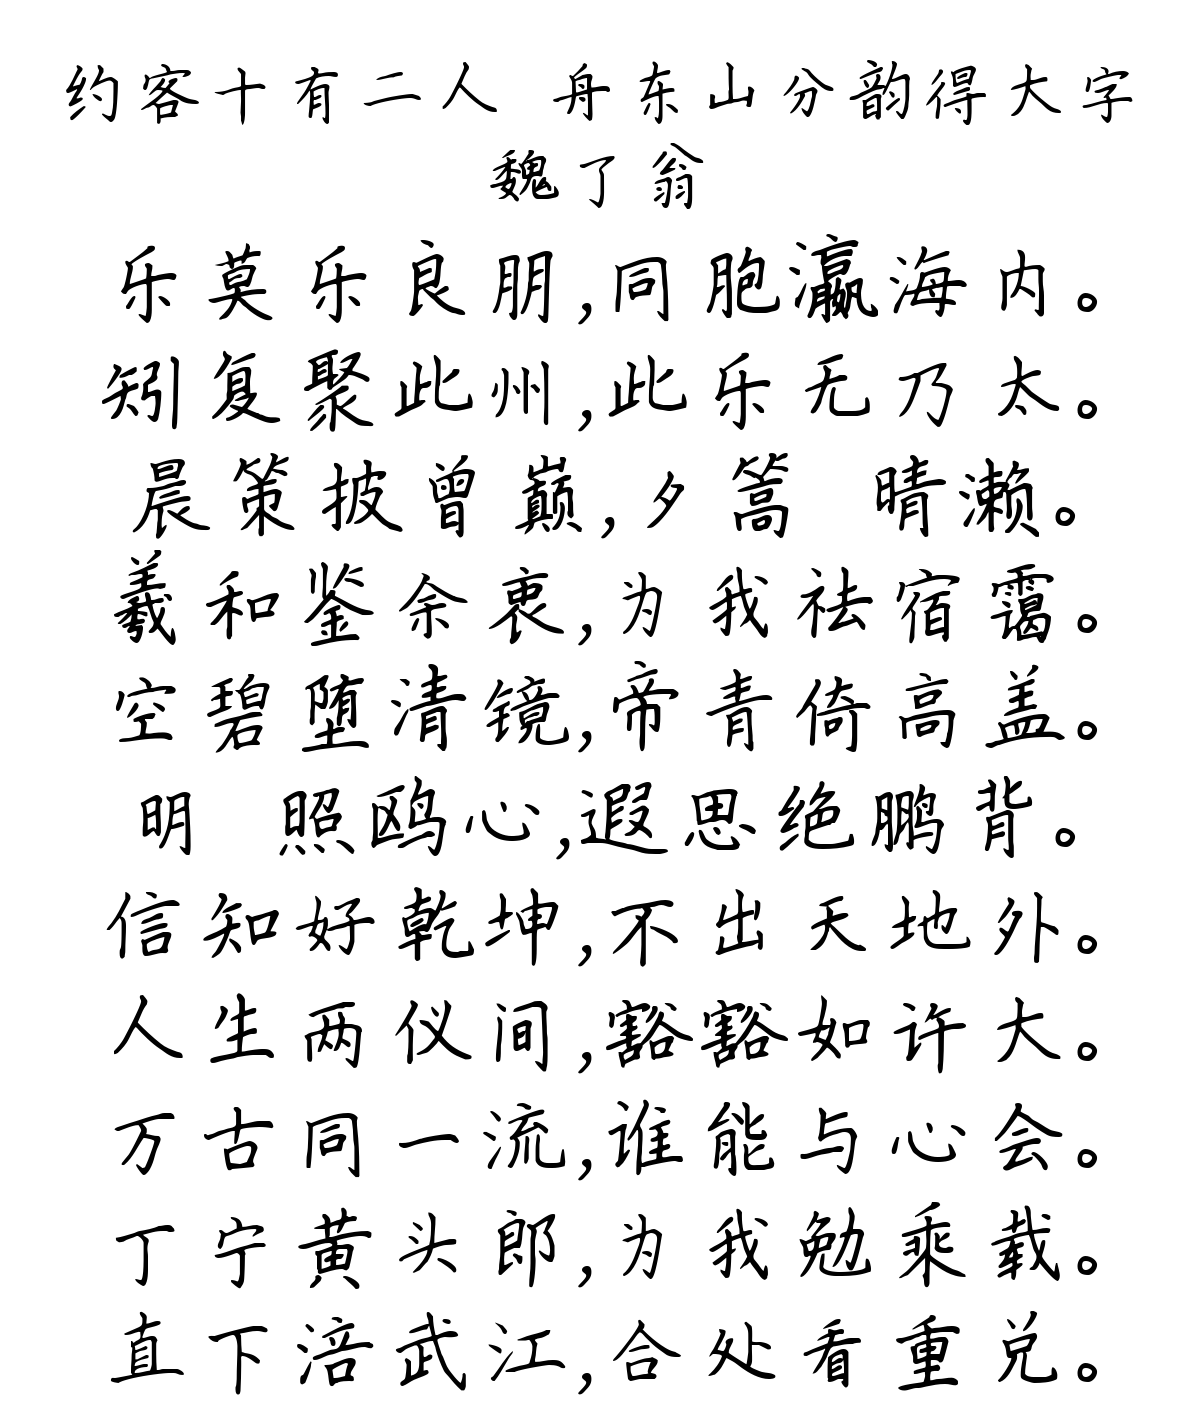 约客十有二人 舟东山分韵得大字
魏了翁
乐莫乐良朋,同胞瀛海内。
矧复聚此州,此乐无乃太。
晨策披曾巅,夕篙 晴濑。
羲和鉴余衷,为我祛宿霭。
空碧堕清镜,帝青倚高盖。
明 照鸥心,遐思绝鹏背。
信知好乾坤,不出天地外。
人生两仪间,豁豁如许大。
万古同一流,谁能与心会。
丁宁黄头郎,为我勉乘载。
直下涪武江,合处看重兑。